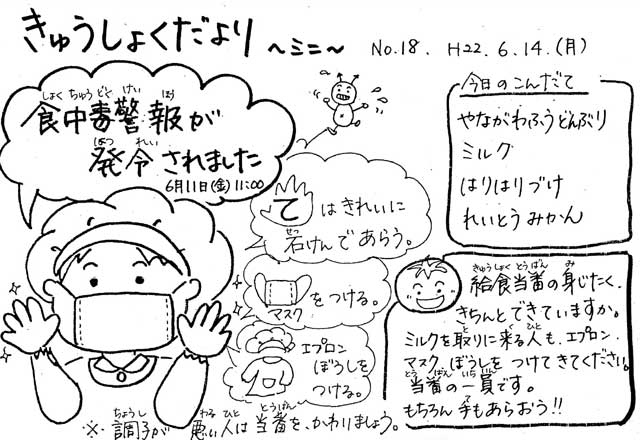 きゅうしょくだより ～ミニ～ No.18. H22.6.14.(月)
しょくちゅうどくけいほう
食中毒警報が
はつれい
発令されました
6月11日(金)11:00
ては きれいに
せっ
石けんであらう。
マスク をつける。
エプロン
ぼうしを
つける。
ちょうし わる ひと とうばん
※ 調子が 悪い人は 当番を、かわりましょう。
今日のこんだて
やながわふうどんぶり
ミルク
はりはりづけ
れいとうみかん
きゅうしょくとうばん み
給食当番の身じたく、
きちんとできていますか。
と く ひと
ミルクを取りに来る人も、エプロン、
マスク、ぼうしをつけてきてください。
とうばん いちいん
当番の一員です。
て
もちろん 手もあらおう!!